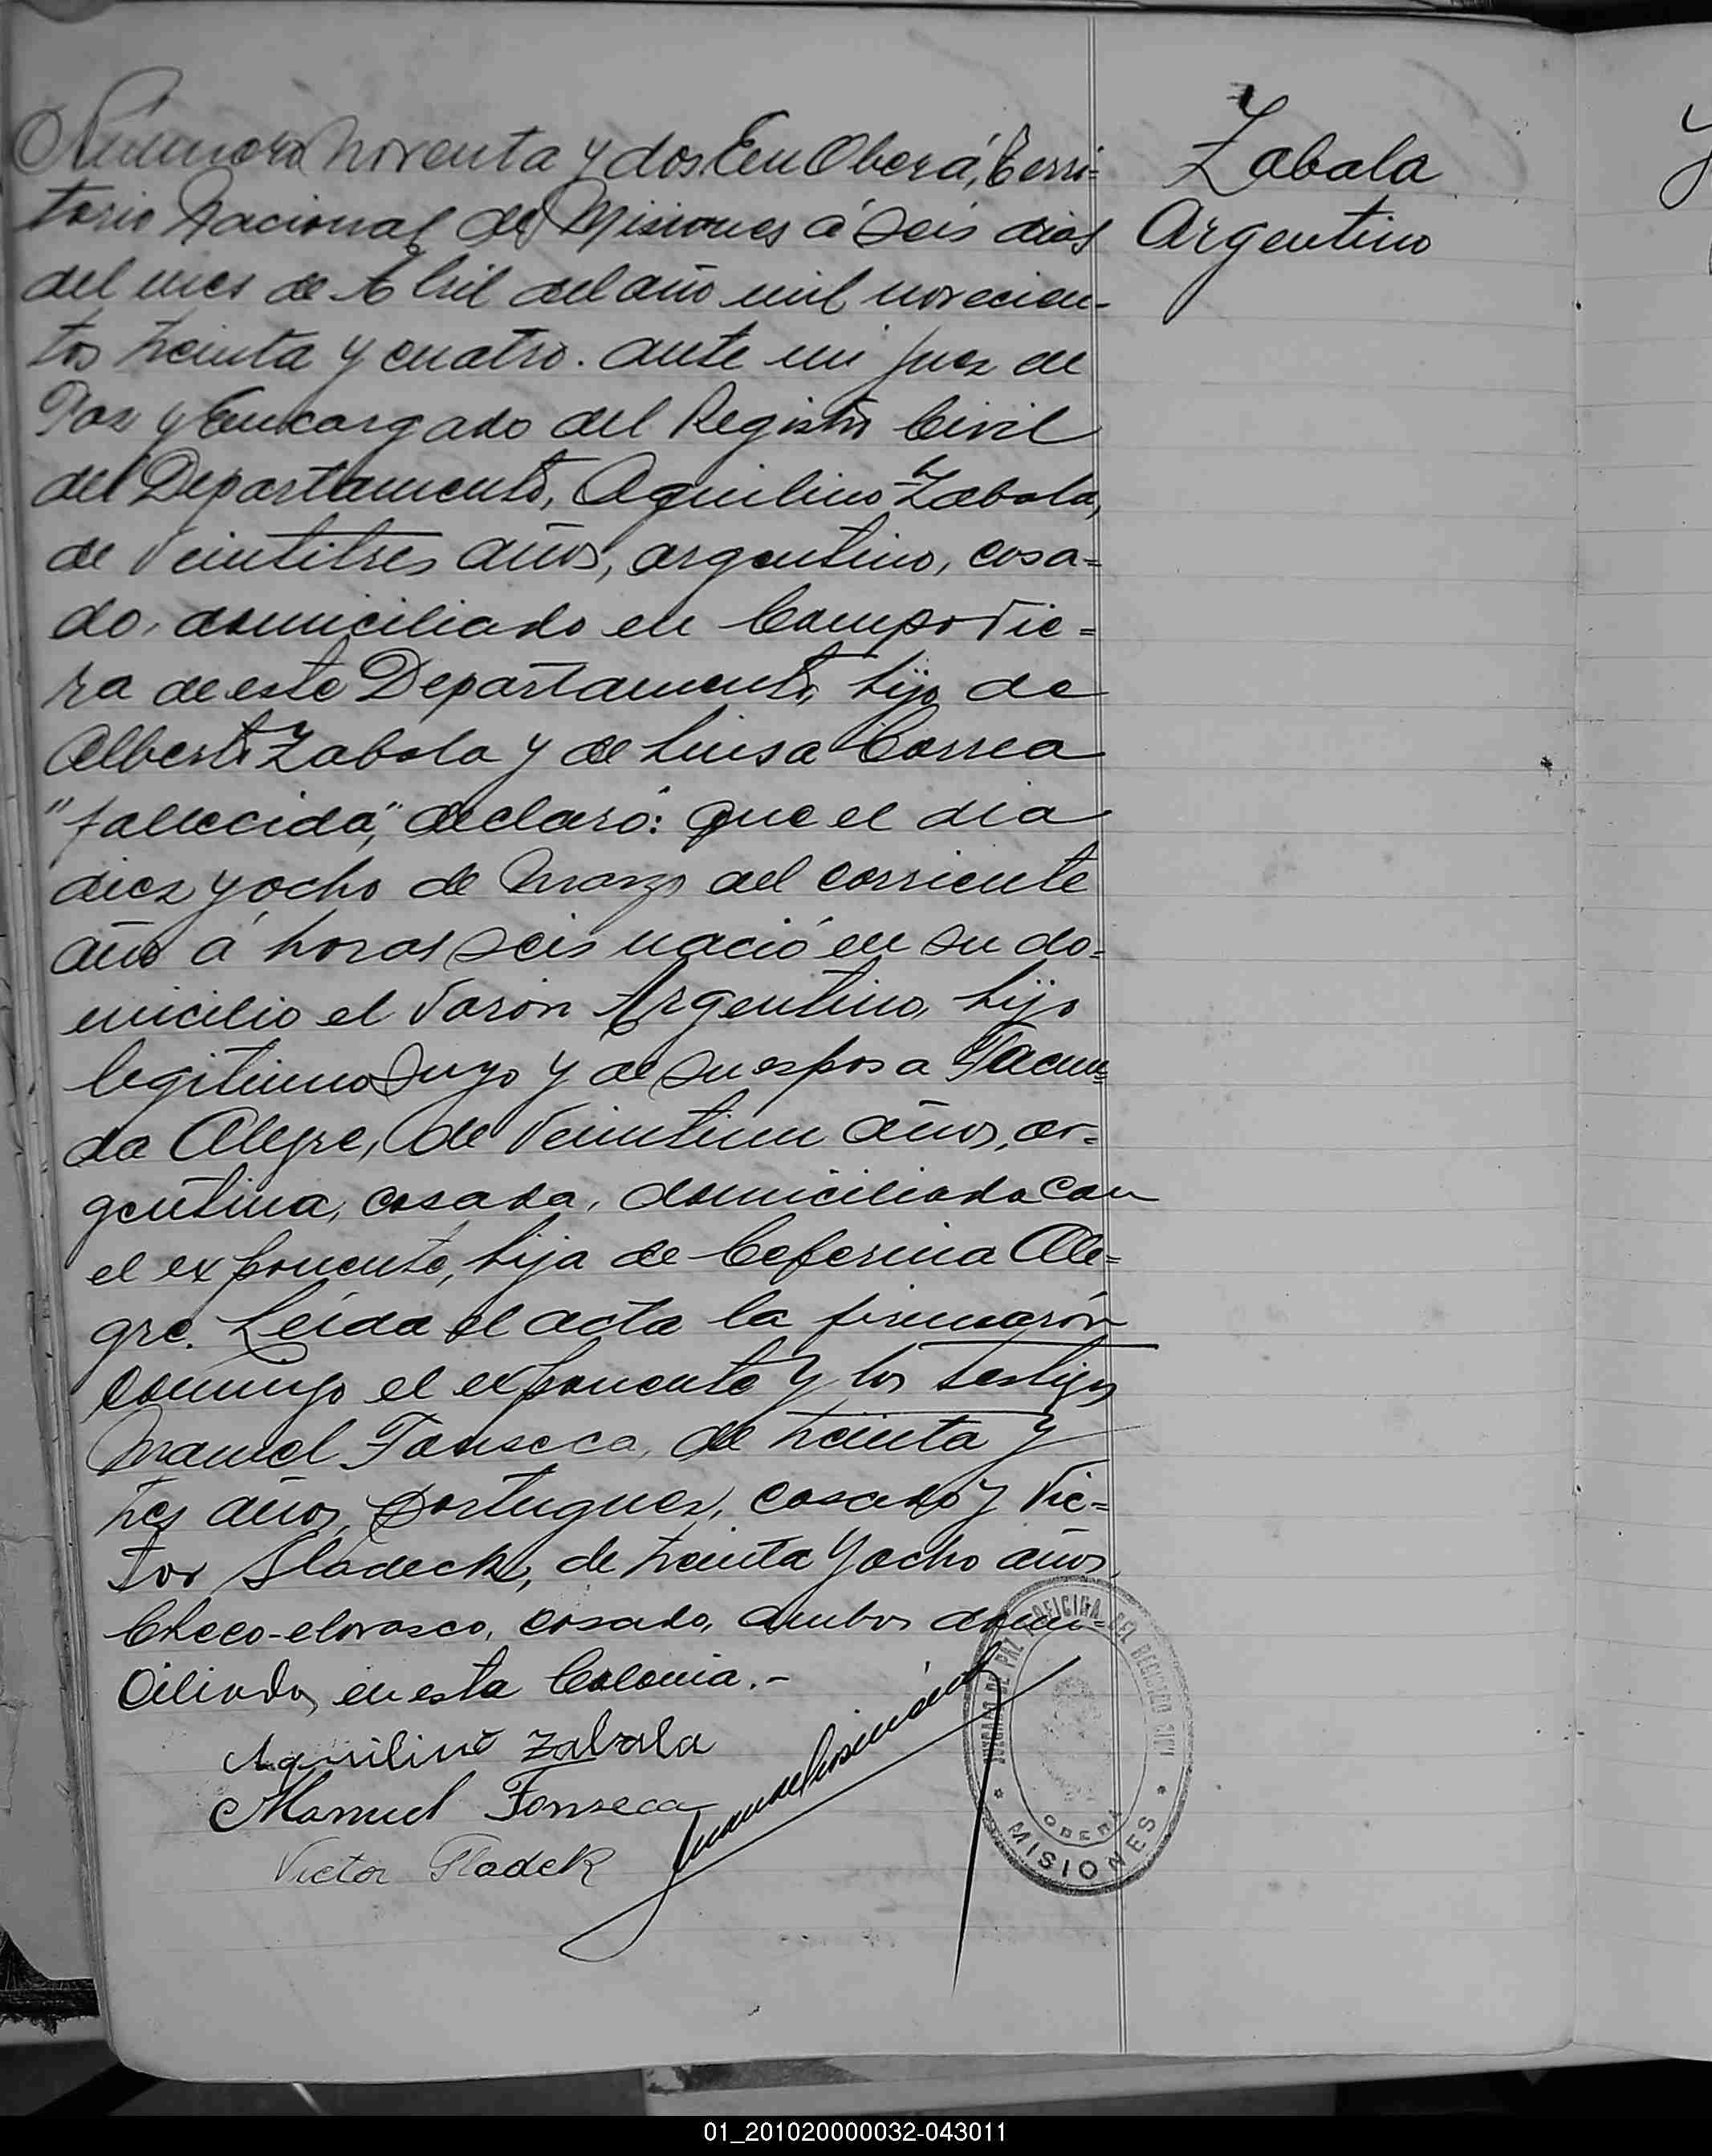 Número noventa y dos. En Oberá, Terri-
torio Nacional de Misiones á seis dias
del mes de Abril del año mil novecien-
tos treinta y cuatro. ante mi Juez de
Paz y Encargado del Registro Civil
del Departamento, Aquilino Zabala,
de veintitres años, argentino, casa=
do, domiciliado en Campo Vie=
ra de este Departamento, hijo de
Alberto Zabala y de Luisa Correa
"fallecida", declaró: que el dia
diez y ocho de Marzo del corriente
año á horas seis nació en su do=
micilio el varón Argentino, hijo
legitimo suyo y de su esposa Facun=
da Alegre, de veintiun años, ar-
gentina, casada, domiciliada con
el exponente, hija de Ceferina Ale=
gre. Leida el acta la firmarón
conmigo el exponente y los testigos
Manuel Fonseca, de treinta y
tres años, portugues, casado y Vic=
tor Sladeck, de treinta y ocho años,
Checo-elovasco, casado, ambos domi=
ciliados en esta Colonia.-
Aquilino Zabala
Manuel Fonseca
Victor Sladek
JUZGADO DE PAZ Y OFICINA DEL REGISTRO CIVIL
OBERÁ
* MISIONES *
Zabala
Argentino
01_201020000032-043011